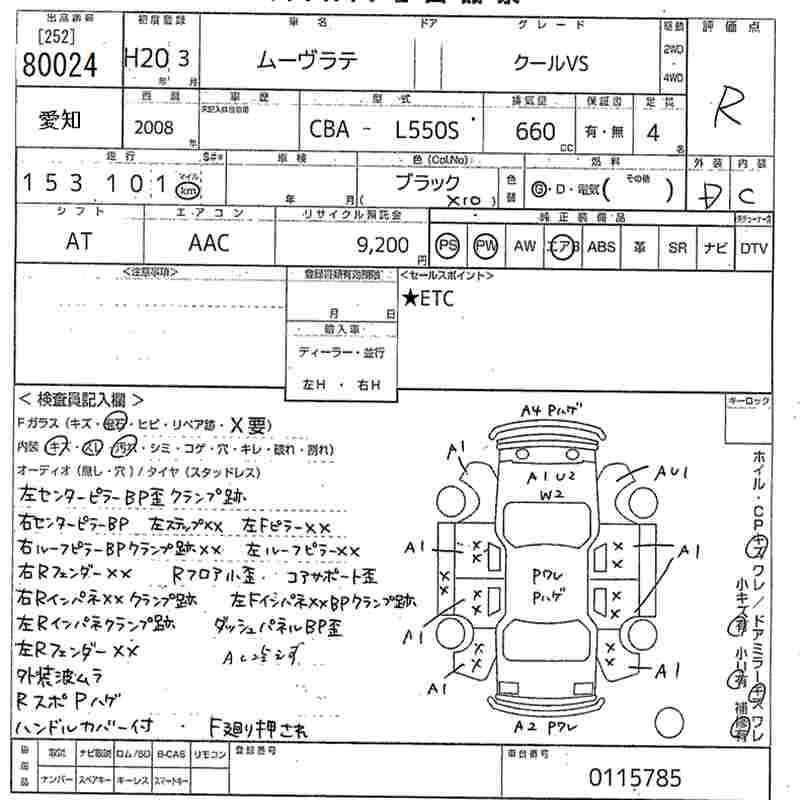 出品番号 初度登録 車名 ドア グレード 駆動 評価点
[252]
80024 H20 3 ムーヴラテ クールVS 2WD・4WD R
年 月
愛知 西暦 車歴 型式 排気量 保証書 定員
2008年 CBA - L550S 660cc 有・無 4名
外装 内装
走行 S#* 車検 色(Col.No) 燃料 D C
153 101 マイル km 年 月 ブラック 色替 G・D・電気( その他 )
( X10 )
シフト エアコン リサイクル預託金 純正装備品
AT AAC 9,200円 PS PW AW エアB ABS 革 SR ナビ DTV
<注意事項> 登録書類有効期限 <セールスポイント>
月 日 ★ETC
輸入車
ディーラー・並行
左H・右H
<検査員記入欄> キーロック
Fガラス(キズ・飛石・ヒビ・リペア跡・X要)
内装(キズ・スレ・汚れ・シミ・コゲ・穴・キレ・破れ・割れ)
オーディオ(無し・穴)/タイヤ(スタッドレス)
左センターピラーBP歪クランプ跡
右センターピラーBP 左ステップXX 左FピラーXX
右ルーフピラーBPクランプ跡XX 左ルーフピラーXX
右RフェンダーXX Rフロア小歪 コアサポート歪
右RインパネXXクランプ跡 左FインパネXXBPクランプ跡
左Rインパネクランプ跡 ダッシュパネルBP歪
左RフェンダーXX
外装波ムラ
RスポPハゲ
ハンドルカバー付・F廻り押され
A4 Pハゲ
A1
A1U2
W2
AU1
A1
A1
Pワレ
Pハゲ
A1
A1
A1
A2 Pワレ
ホイル・CPキズワレ/ドアミラーキズワレ
小キズ有 小U有 補修有
取説 ナビ取説 ロム/SD B-CAS リモコン 登録番号 車台番号
ナンバー スペアキー キーレス スマートキー 0115785